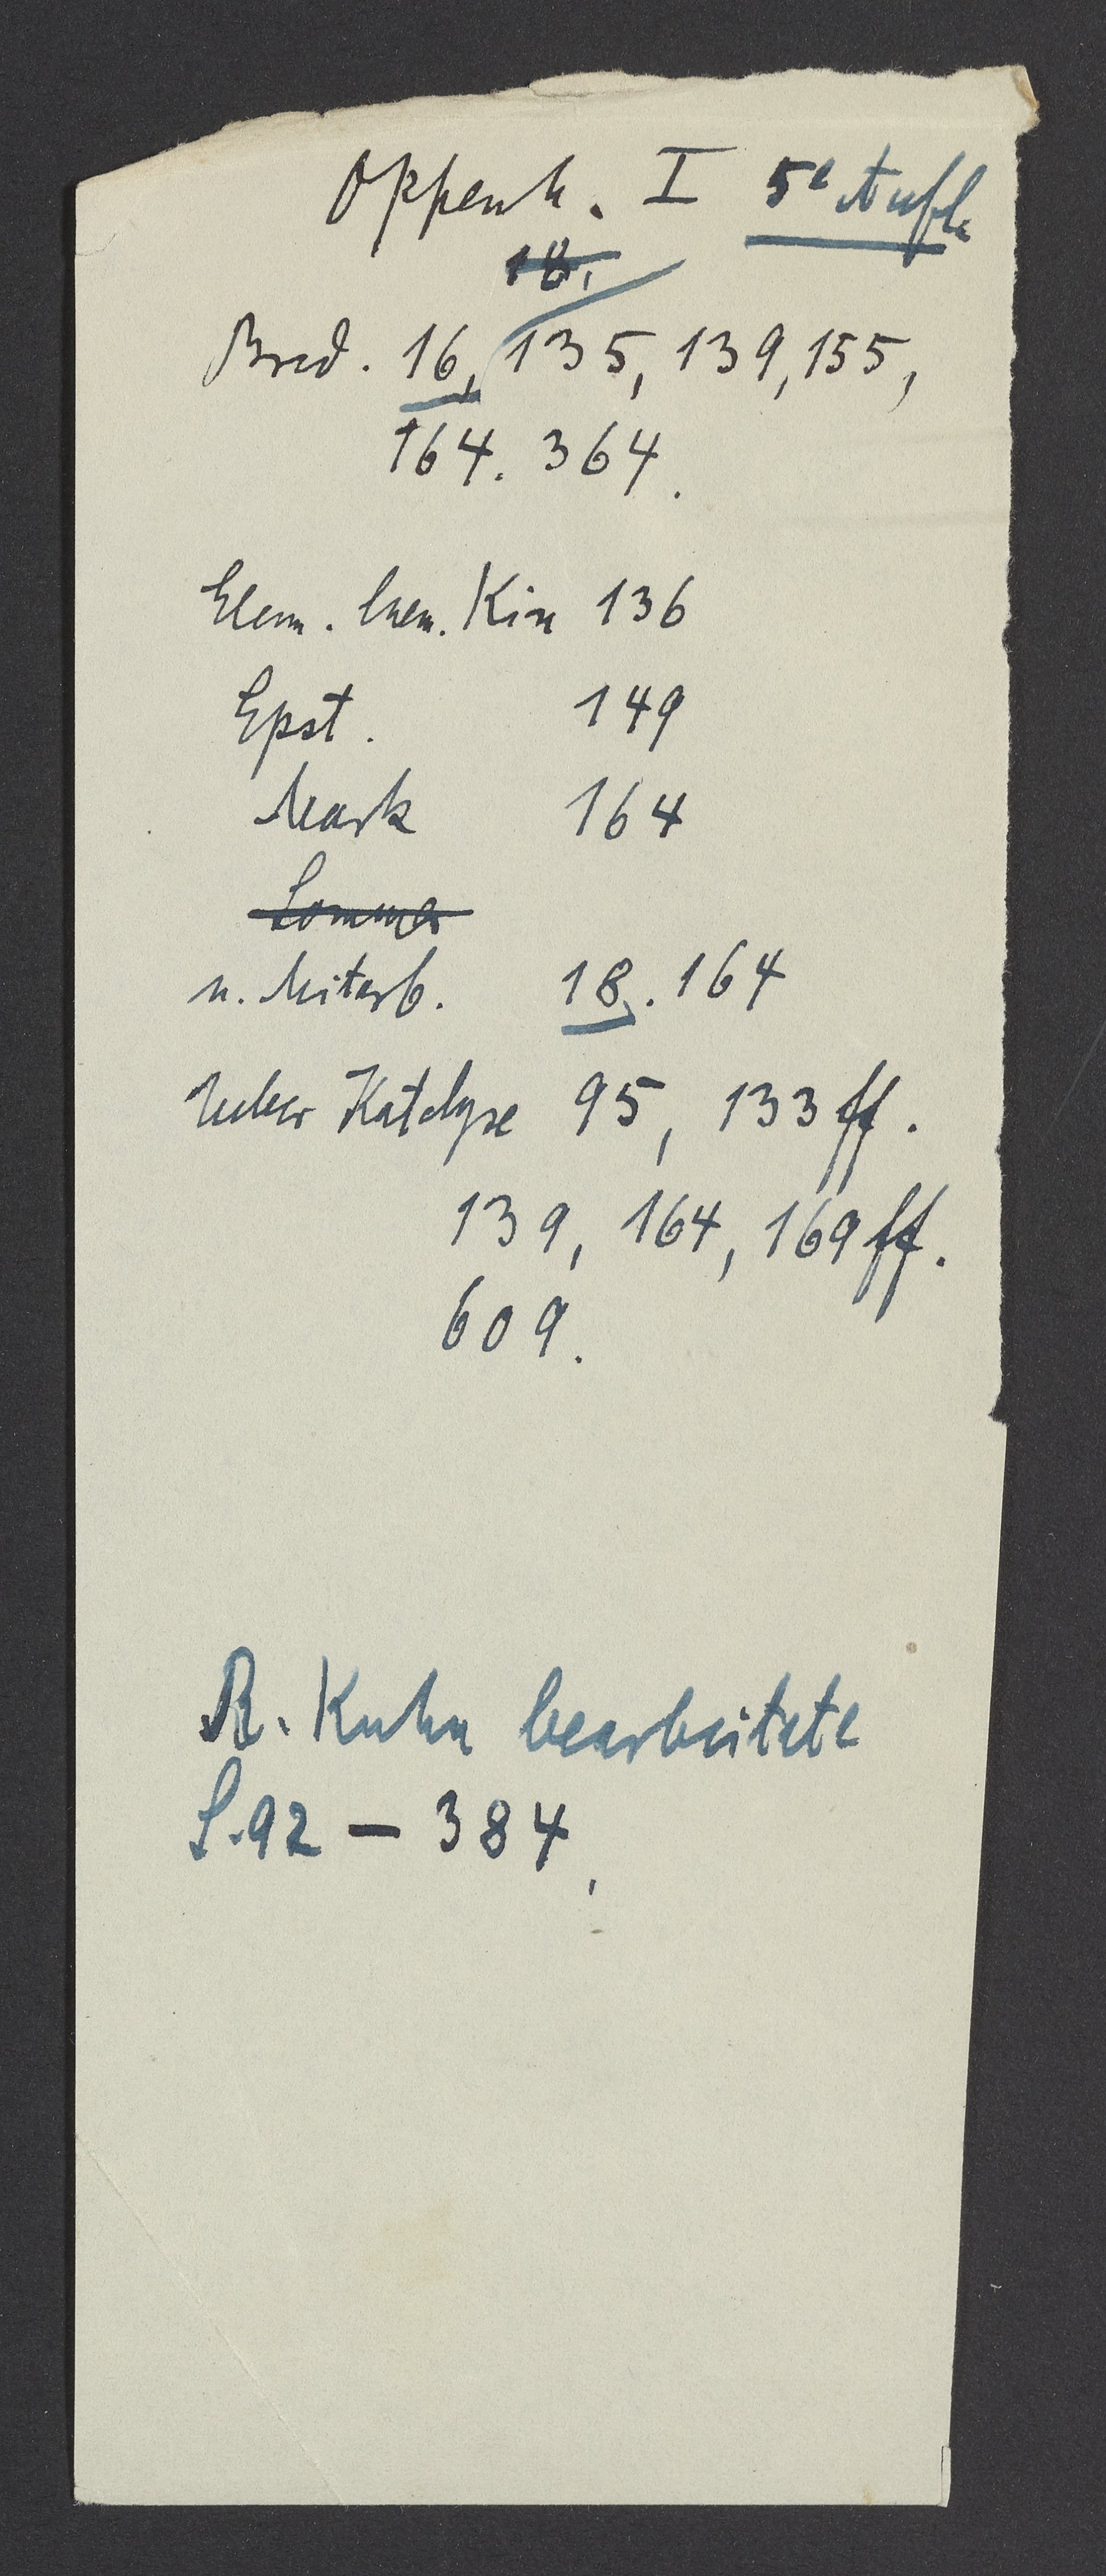 Oppenh. I 5e Aufl.
18.
Bred. 16, 135, 139, 155,
164. 364.
Elem. Chem. Kin 136
Epst. 149
Mark 164
Sommer
u. Mitarb. 18. 164
Ueber Katalyse 95, 133 ff.
139, 164, 169 ff.
609.
R. Kuhn bearbeitete
S. 92 – 384.